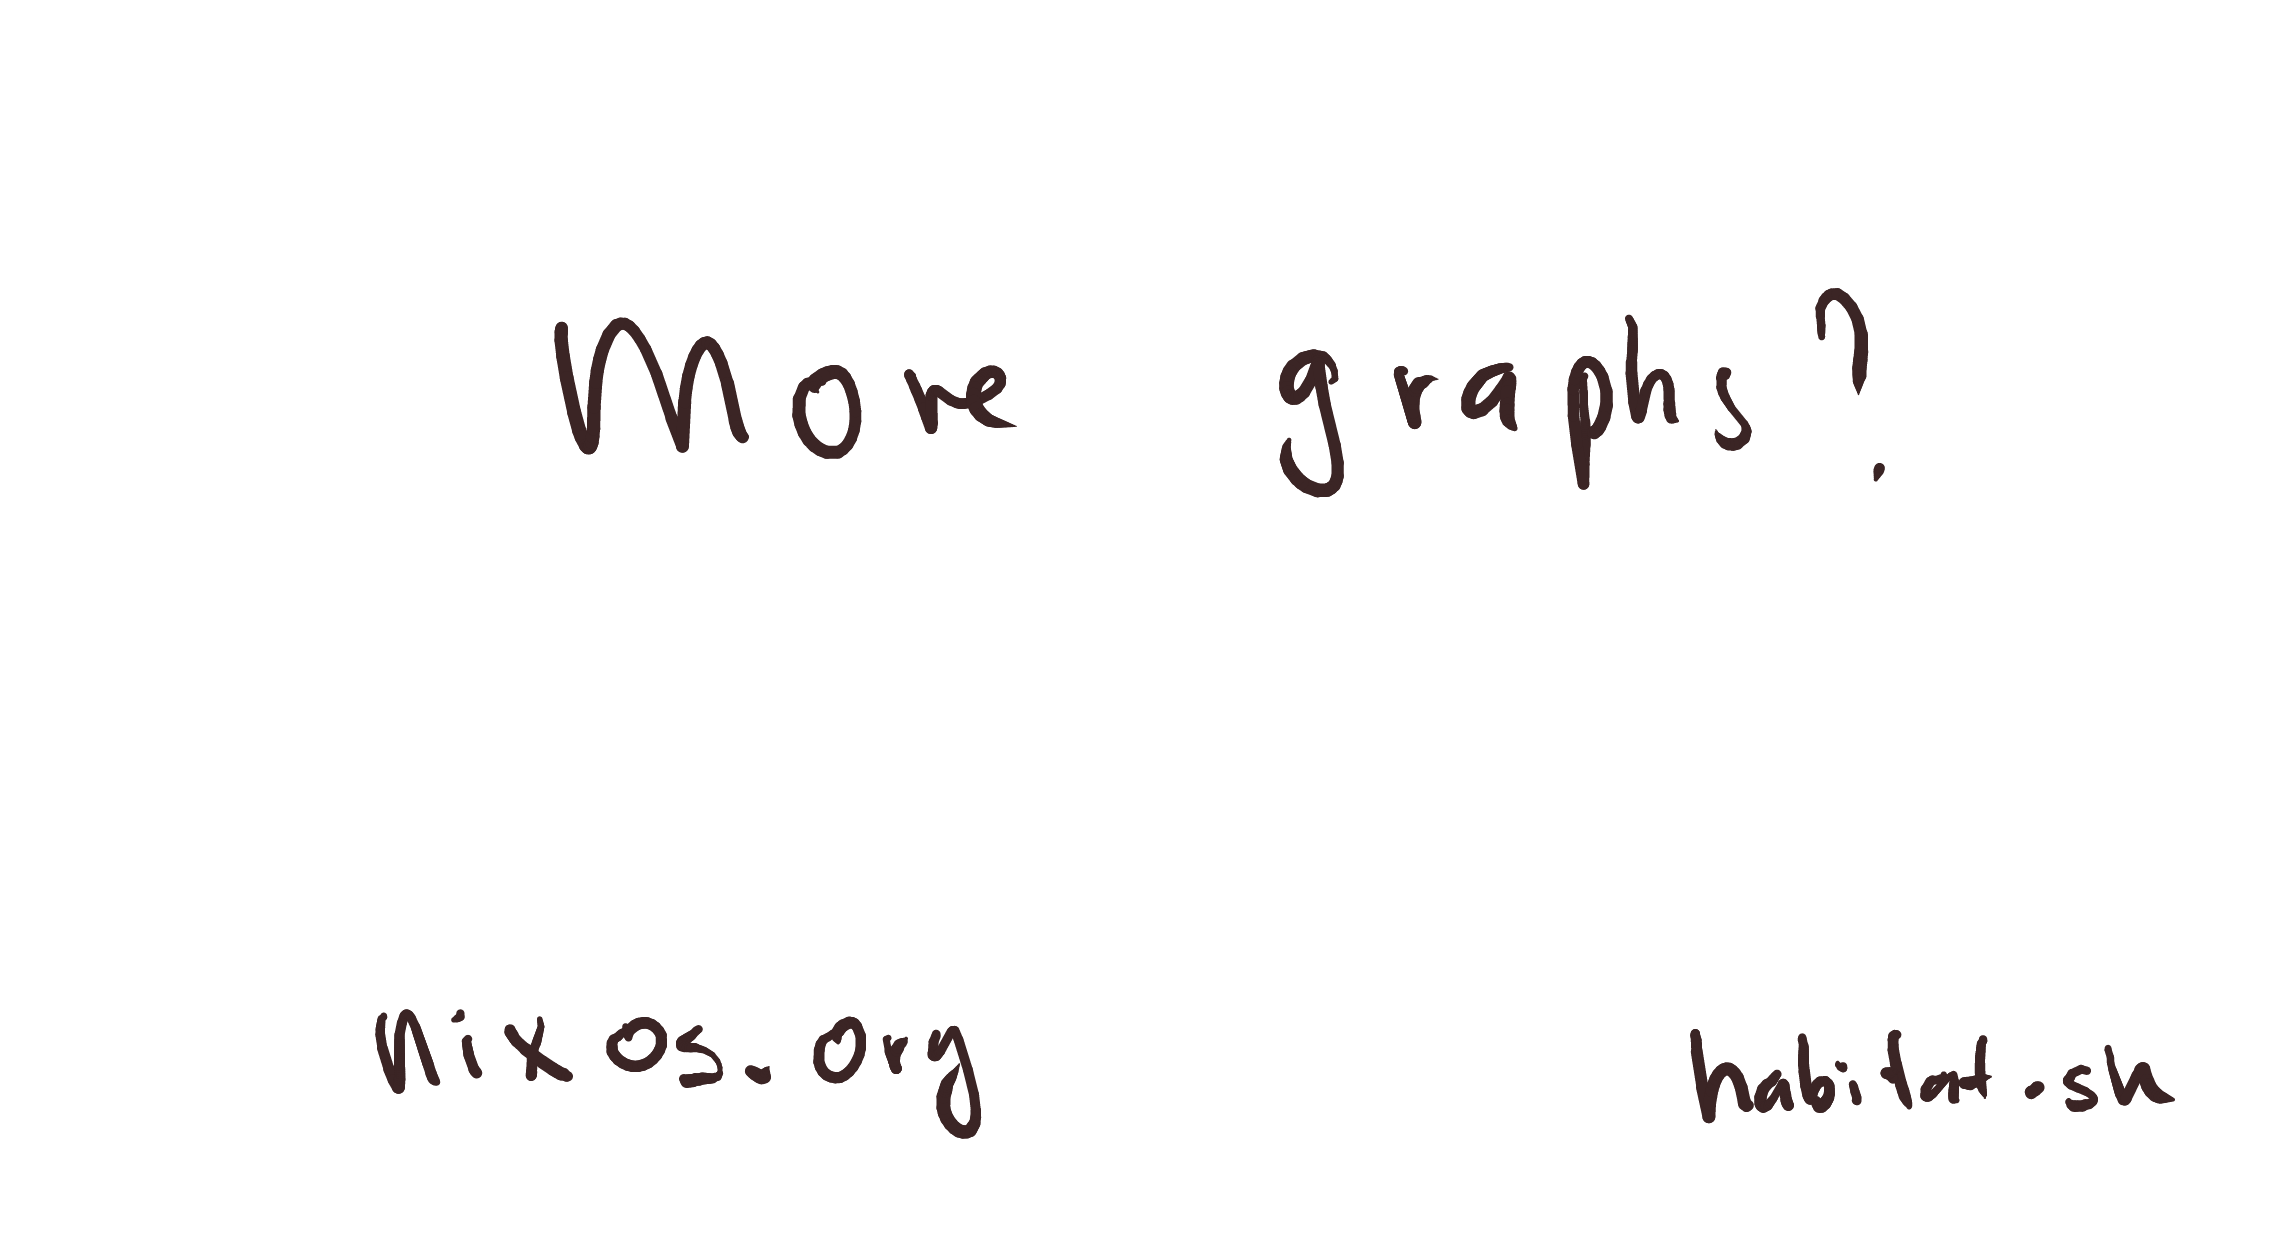 More graphs?
nixos.org
habitat.sh